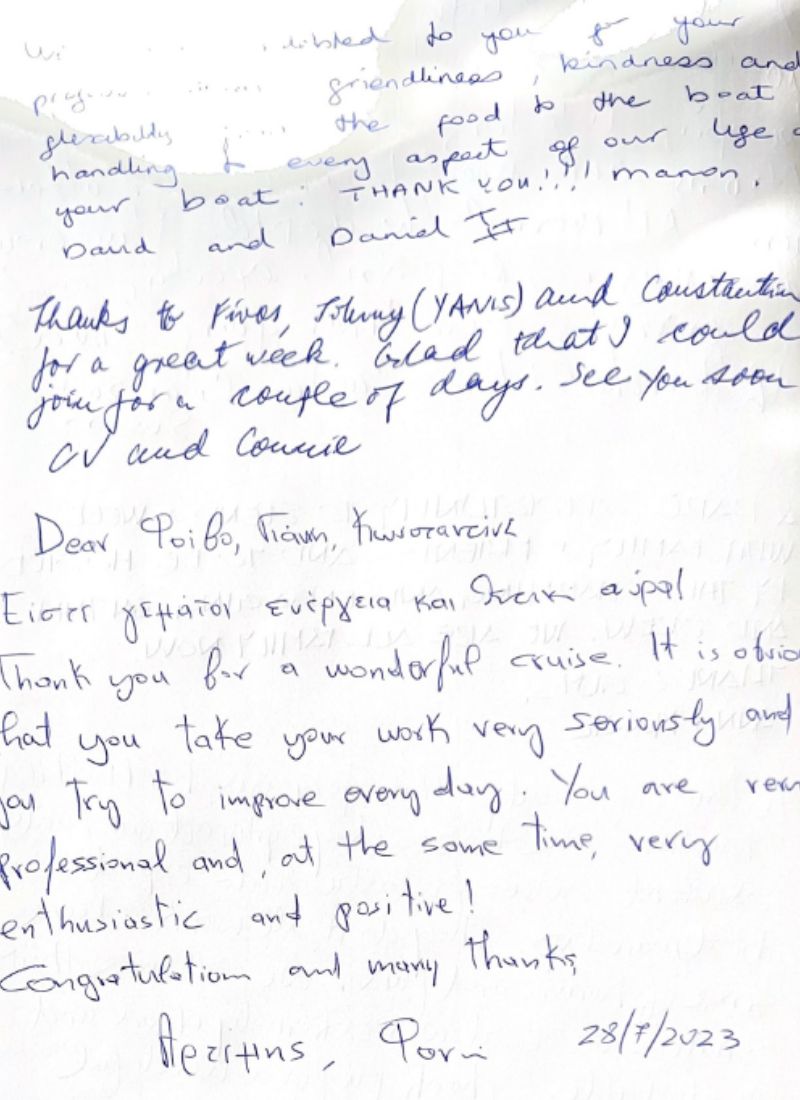 to you for your
friendliness, kindness and
flexibility the food to the boat
handling & every aspect of our life
your boat. THANK YOU!!! manon.
David and Daniel
Thanks to Fivos, Johnny (YANIS) and Constantin
for a great week. Glad that I could
join for a couple of days. See you soon
CV and Connie
Dear Φοίβο, Γιάννη, Κωνσταντίνε
Είστε γεμάτοι ενέργεια και θετική αύρα!
Thank you for a wonderful cruise. It is obvio
hat you take your work very seriously and
you try to improve every day. You are very
professional and, at the same time, very
enthusiastic and positive!
Congratulation and many thanks,
28/7/2023